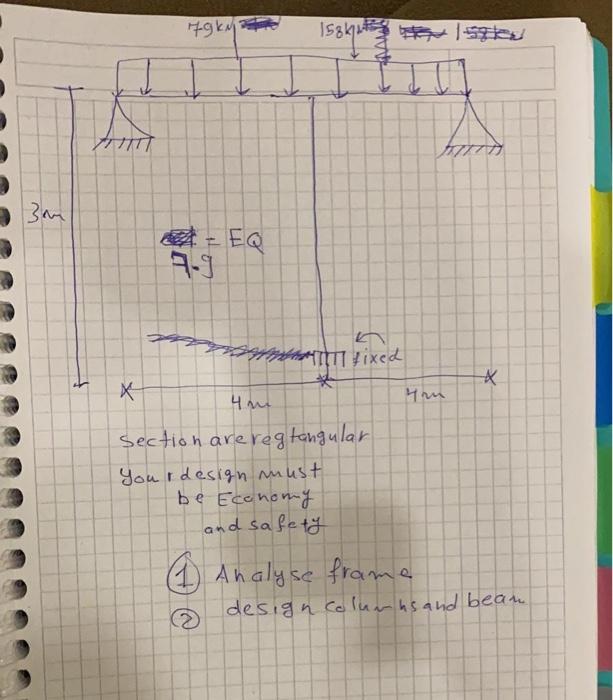 79kN 158kN
3m
= EQ
7.9
fixed
4m 4m
section are regtangular
your design must
be Economy
and safety
① Analyse frame
② design columns and beam